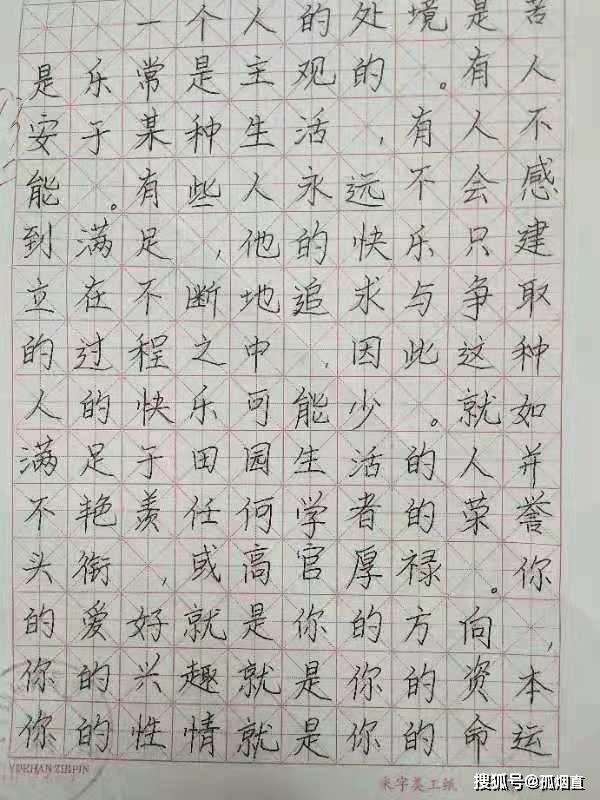 一个人的处境是苦
是乐常是主观的。有人
安于某种生活，有人不
能。有些人永远不会感
到满足，他的快乐只建
立在不断地追求与争取
的过程之中，因此这种
人的快乐可能少。就如
满足于田园生活的人并
不艳羡任何学者的荣誉
头衔，或高官厚禄。你
的爱好就是你的方向，
你的兴趣就是你的资本
你的性情就是你的命运
YIREHAN ZHIPIN
米字美工纸
搜狐号@孤烟直